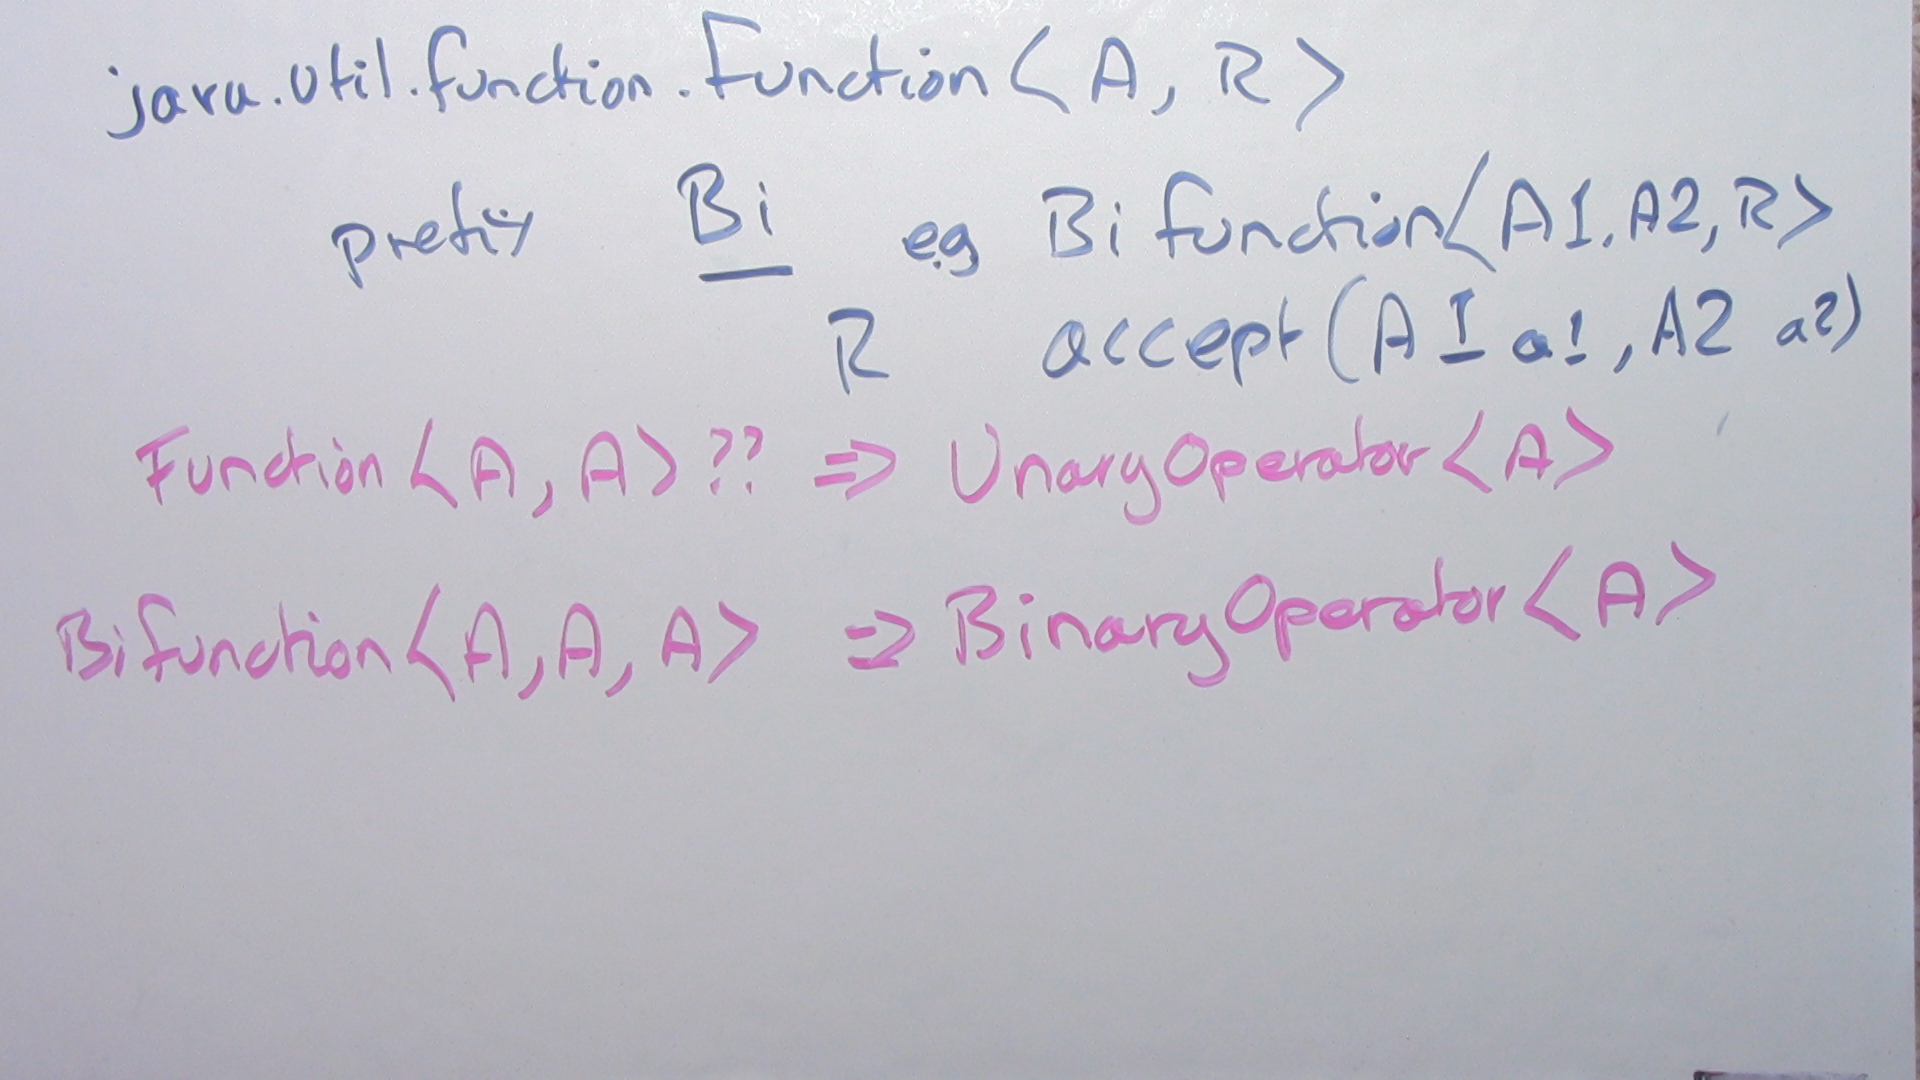 java.util.function.Function<A, R>
prefix Bi eg Bifunction<A1, A2, R>
R accept(A1 a1, A2 a2)
Function<A, A>?? => UnaryOperator<A>
Bifunction<A, A, A> => BinaryOperator<A>